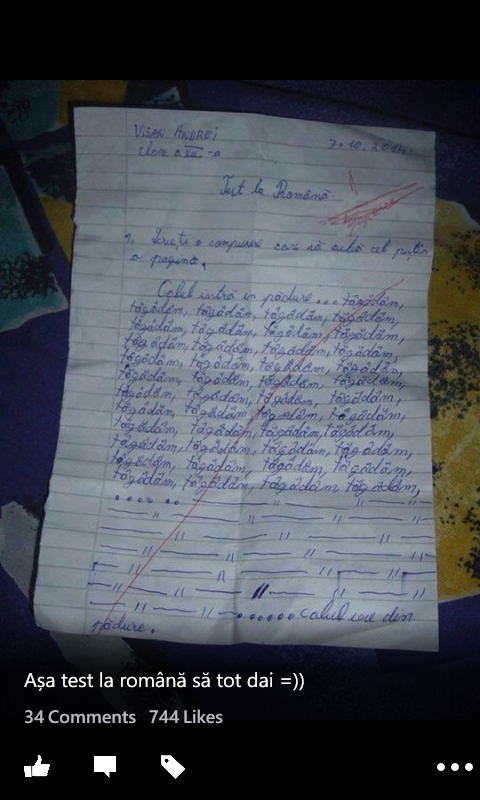 VIȘAN ANDREI
7.10.2014
clasa a XII-a
Test la Română
1. Scrieți o compunere care să aibă cel puțin
o pagină.
Calul intră în pădure... tăgădâm,
tăgădâm, tăgădâm, tăgădâm, tăgădâm,
tăgădâm, tăgădâm, tăgădâm, tăgădâm,
tăgădâm, tăgădâm, tăgădâm, tăgădâm,
tăgădâm, tăgădâm, tăgădâm, tăgădâm,
tăgădâm, tăgădâm, tăgădâm, tăgădâm,
tăgădâm, tăgădâm, tăgădâm, tăgădâm,
tăgădâm, tăgădâm, tăgădâm, tăgădâm,
tăgădâm, tăgădâm, tăgădâm, tăgădâm,
tăgădâm, tăgădâm, tăgădâm, tăgădâm,
tăgădâm, tăgădâm, tăgădâm, tăgădâm,
tăgădâm, tăgădâm, tăgădâm, tăgădâm,
...... calul iese din
pădure.
Așa test la română să tot dai =))
34 Comments 744 Likes